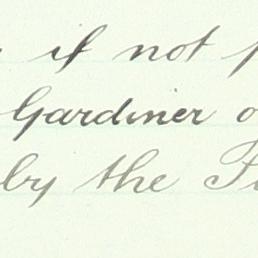 if not
Gardiner
by the